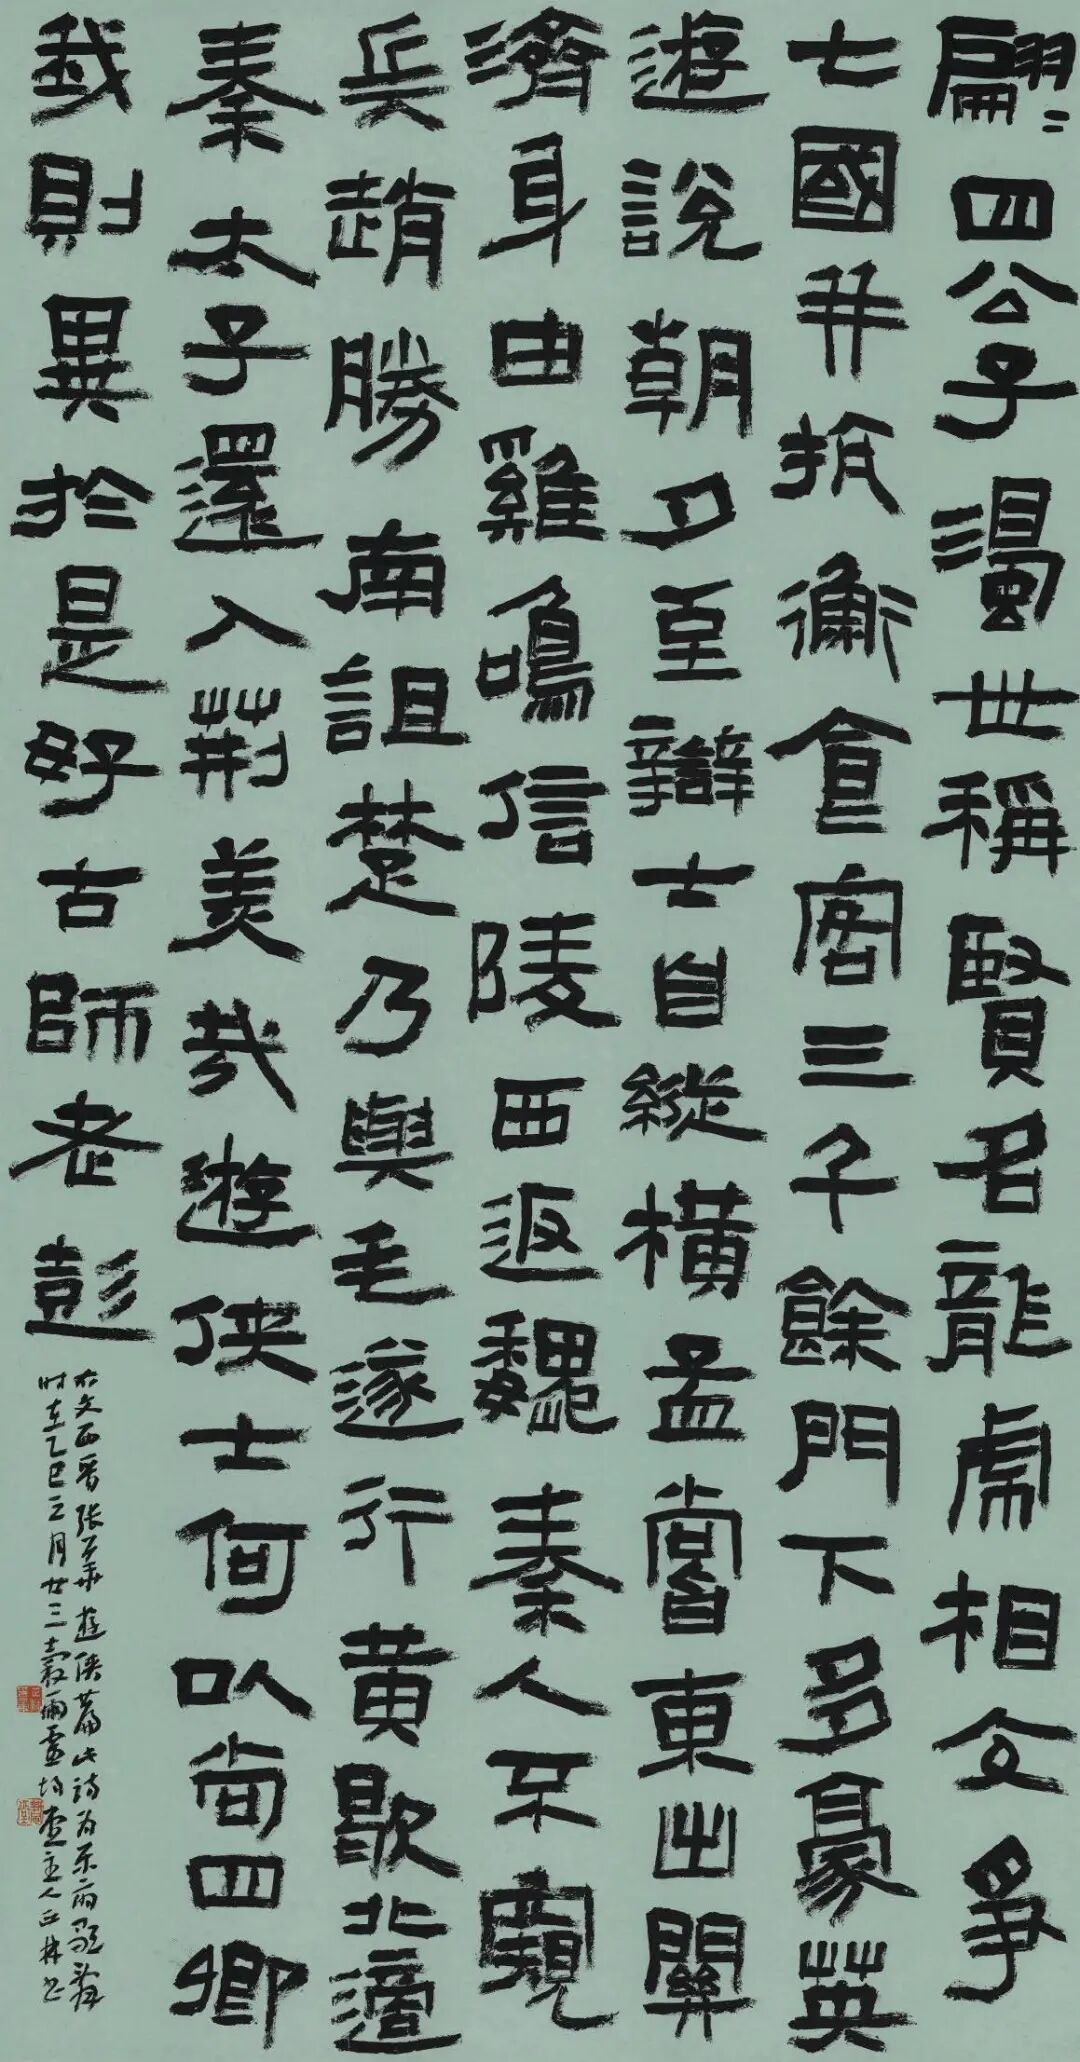 翩〻四公子濁世稱賢名龍虎相交爭
七國并抗衡食客三千餘門下多豪英
遊說朝夕至辯士自縱橫孟嘗東出關
濟身由雞鳴信陵西返魏秦人不窺
兵趙勝南詛楚乃與毛遂行黃歇北適
秦太子還入荊美哉遊俠士何以尚四卿
我則異於是好古師老彭
右文西晋张华遊俠篇此诗为乐府歌辞
时在乙巳三月廿三穀雨主人丘林书